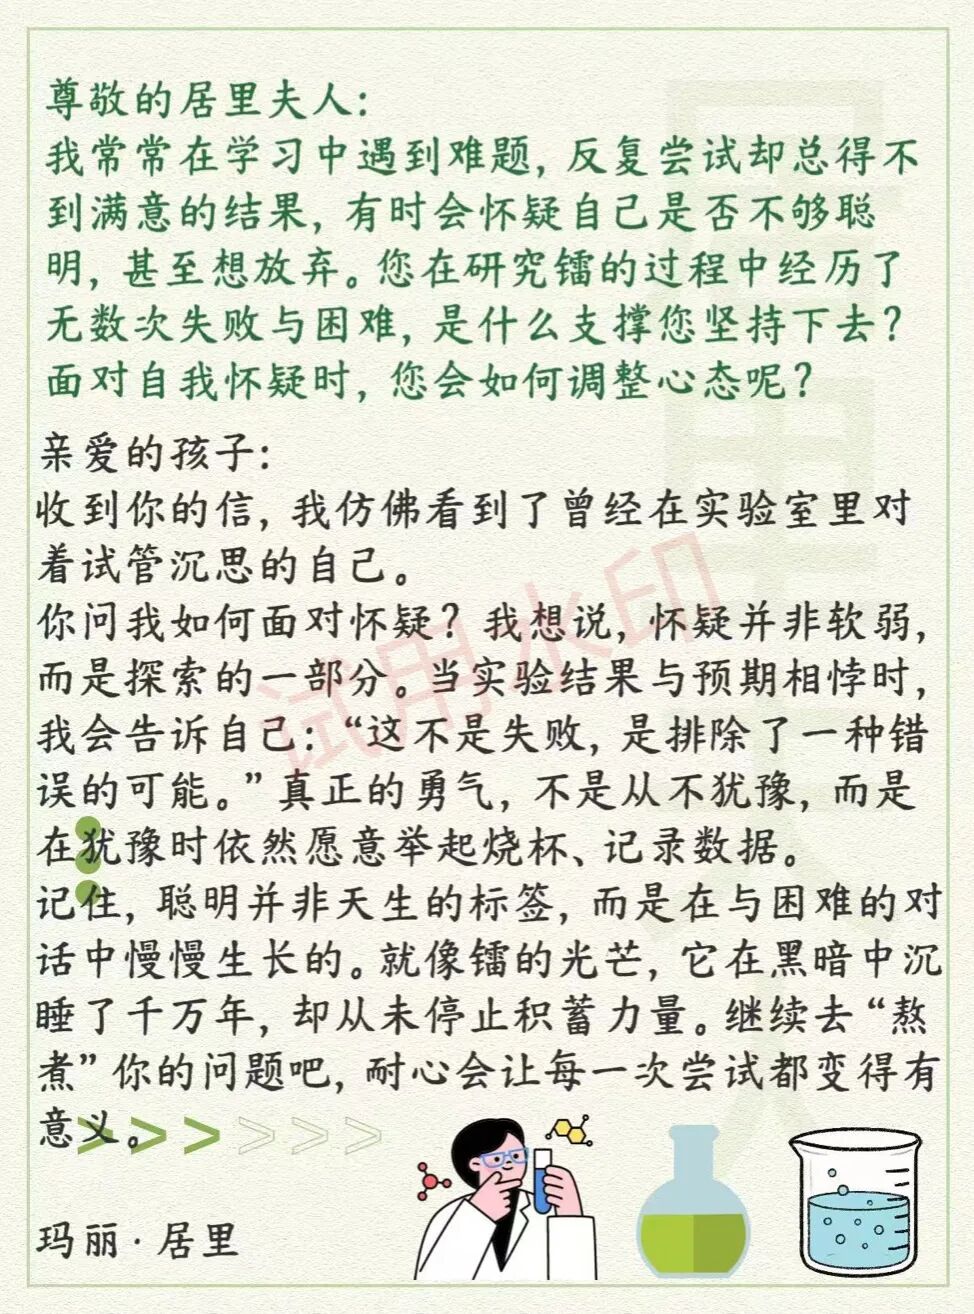 尊敬的居里夫人：
我常常在学习中遇到难题，反复尝试却总得不
到满意的结果，有时会怀疑自己是否不够聪
明，甚至想放弃。您在研究镭的过程中经历了
无数次失败与困难，是什么支撑您坚持下去？
面对自我怀疑时，您会如何调整心态呢？
亲爱的孩子：
收到你的信，我仿佛看到了曾经在实验室里对
着试管沉思的自己。
你问我如何面对怀疑？我想说，怀疑并非软弱，
而是探索的一部分。当实验结果与预期相悖时，
我会告诉自己：“这不是失败，是排除了一种错
误的可能。”真正的勇气，不是从不犹豫，而是
在犹豫时依然愿意举起烧杯、记录数据。
记住，聪明并非天生的标签，而是在与困难的对
话中慢慢生长的。就像镭的光芒，它在黑暗中沉
睡了千万年，却从未停止积蓄力量。继续去“熬
煮”你的问题吧，耐心会让每一次尝试都变得有
意义。
玛丽·居里
试用水印
居里夫人